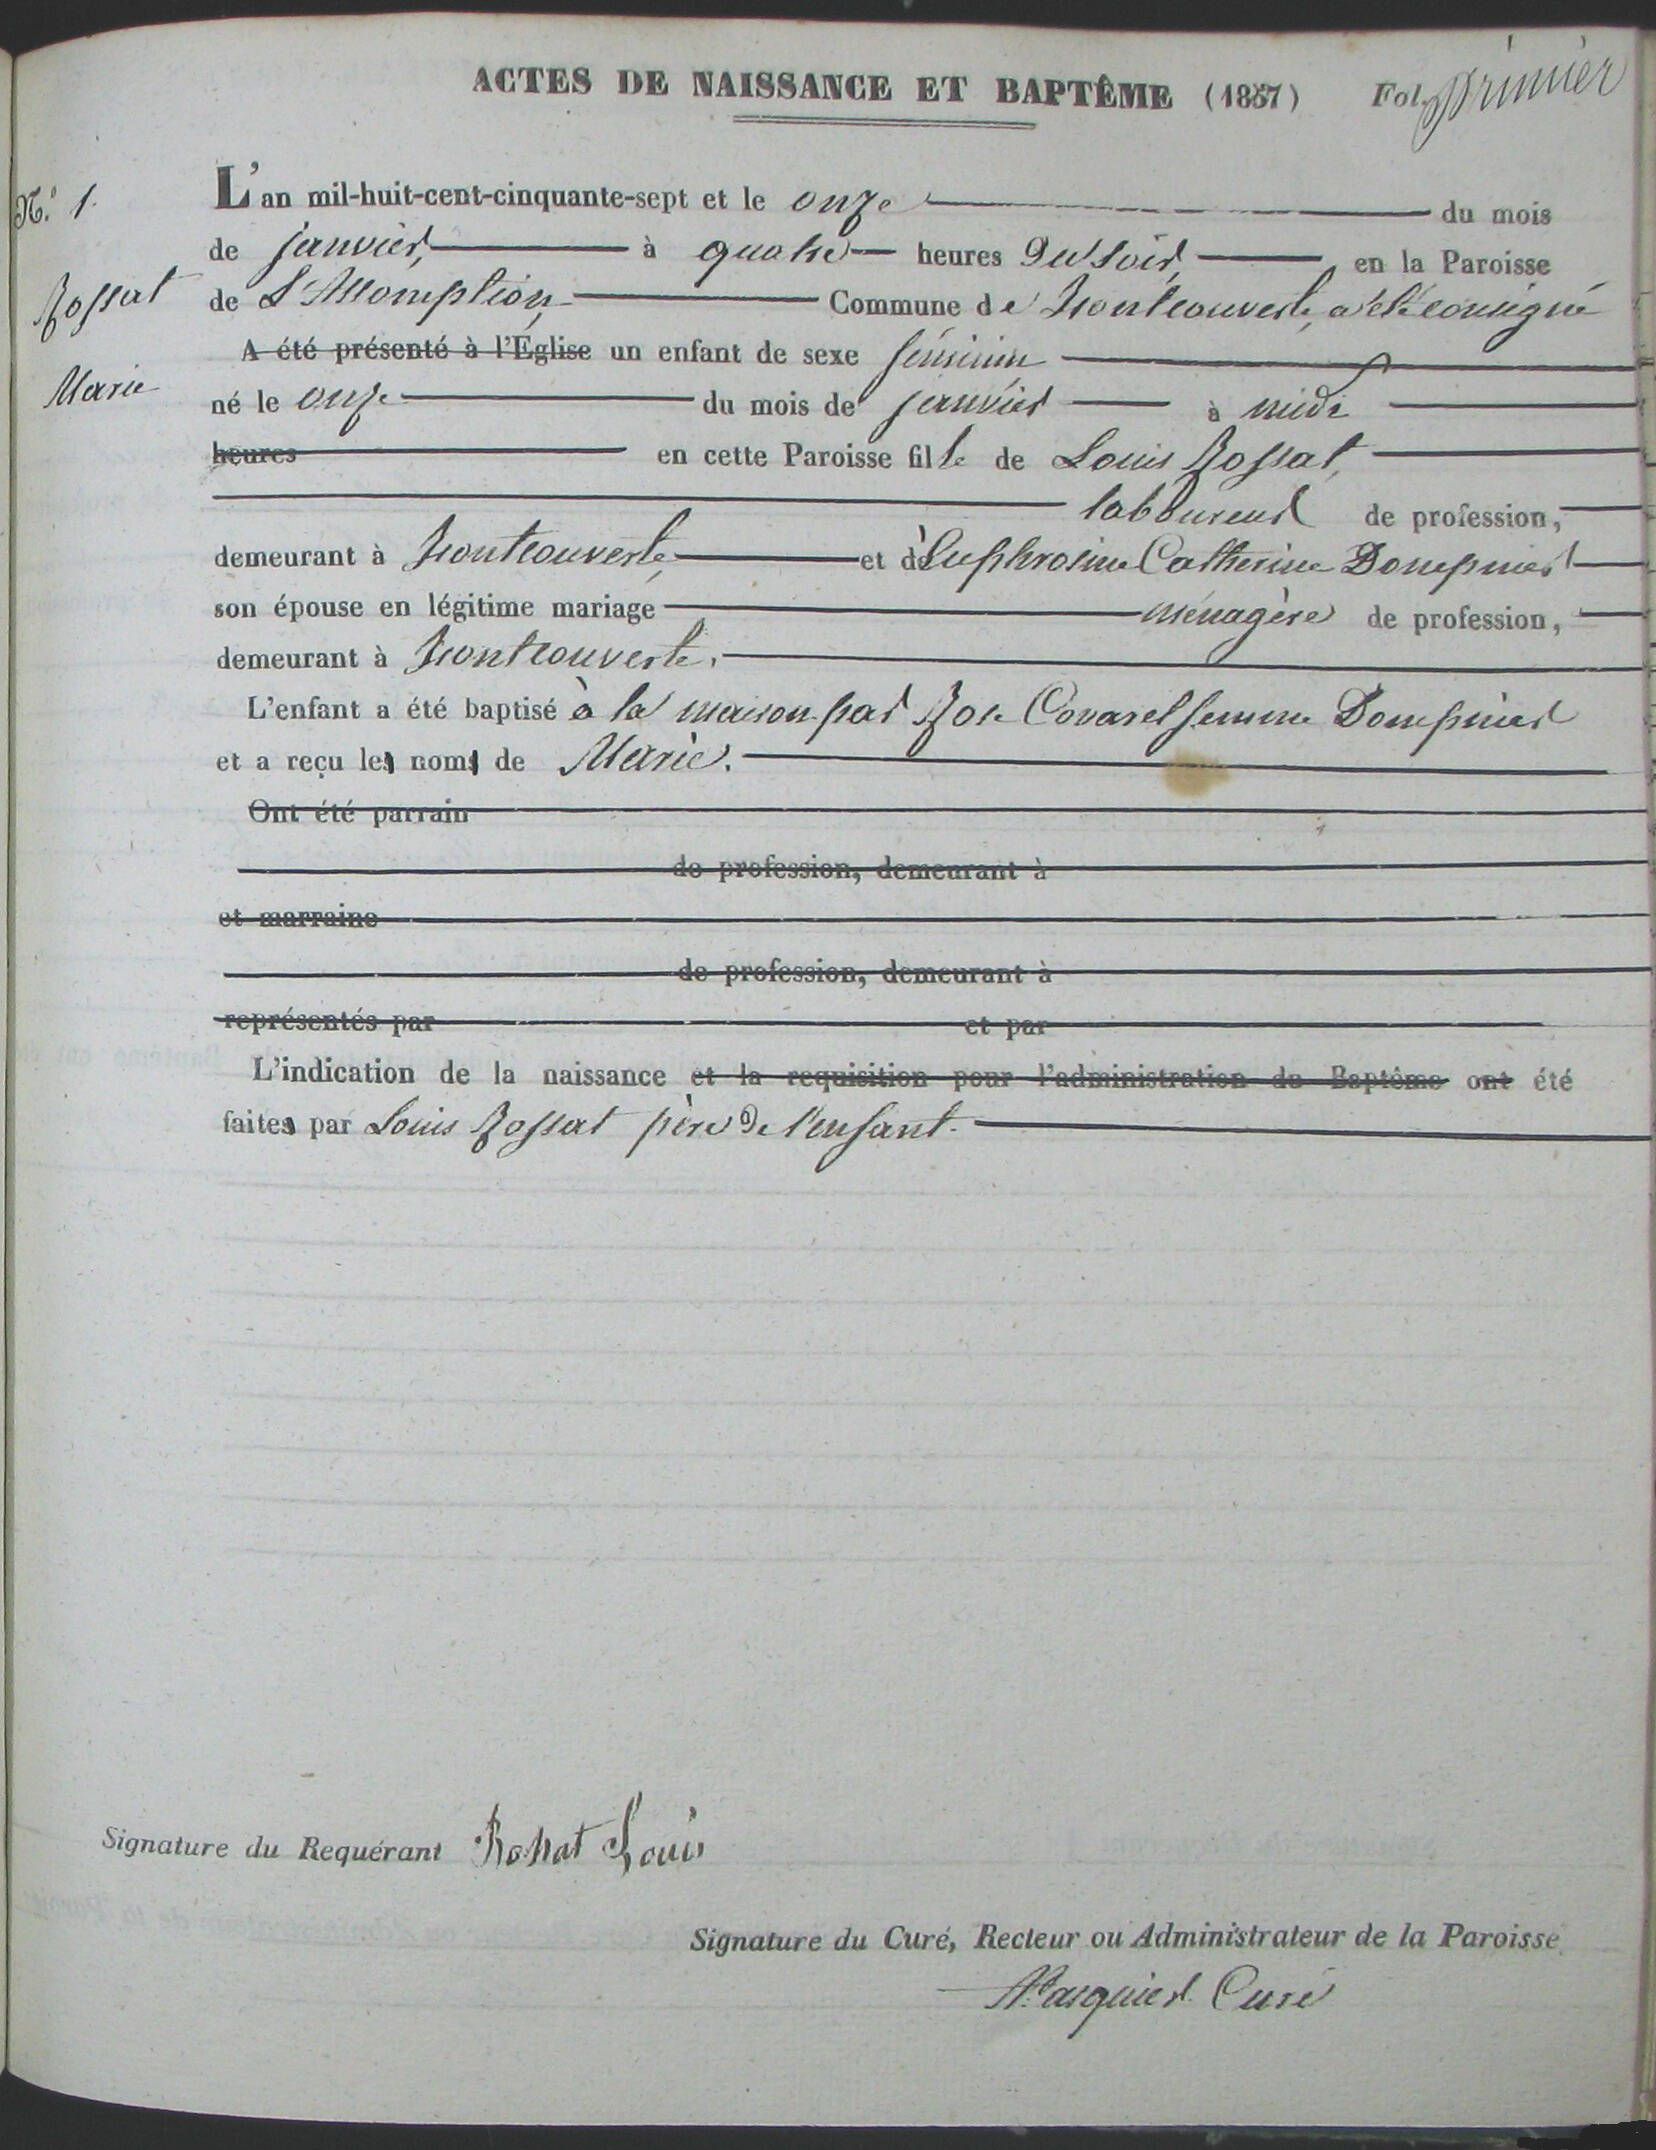 ACTES DE NAISSANCE ET BAPTÊME (1857) Fol. Primier
N.° 1.
L'an mil-huit-cent-cinquante-sept et le onze du mois
de janvier, à quatre heures du soir, en la Paroisse
Rossat
de L'Assomption, Commune de Montcouverte, a été consigné
A été présenté à l'Église un enfant de sexe féminin
Marie
né le onze du mois de janvier à midi
heures en cette Paroisse fille de Louis Rossat,
laboureur de profession,
demeurant à Montcouverte, et de Euphrosine Catherine Dompnier
son épouse en légitime mariage ménagère de profession,
demeurant à Montcouverte.
L'enfant a été baptisé à la maison par Rose Covarel femme Dompnier
et a reçu les noms de Marie.
Ont été parrain
de profession, demeurant à
et marraine
de profession, demeurant à
représentés par et par
L'indication de la naissance et la requisition pour l'administration du Baptême ont été
faites par Louis Rossat père de l'enfant.
Signature du Requérant Rossat Louis
Signature du Curé, Recteur ou Administrateur de la Paroisse
Curé